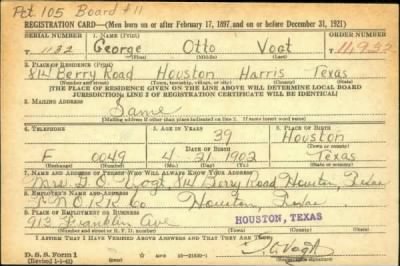 Pct. 105 Board #11
REGISTRATION CARD—(Men born on or after February 17, 1897 and on or before December 31, 1921)
SERIAL NUMBER
1. NAME (Print)
ORDER NUMBER
1132
George Otto Vogt
11,932
(First) (Middle) (Last)
2. PLACE OF RESIDENCE (Print)
814 Berry Road Houston Harris Texas
(Number and street) (Town, township, village, or city) (County) (State)
[THE PLACE OF RESIDENCE GIVEN ON THE LINE ABOVE WILL DETERMINE LOCAL BOARD
JURISDICTION; LINE 2 OF REGISTRATION CERTIFICATE WILL BE IDENTICAL]
3. MAILING ADDRESS
Same
(Mailing address if other than place indicated on line 2. If same insert word same)
4. TELEPHONE
5. AGE IN YEARS
6. PLACE OF BIRTH
39
Houston
DATE OF BIRTH
(Town or county)
F 0049
4 21 1902
Texas
(Exchange) (Number)
(Mo.) (Day) (Yr.)
(State or country)
7. NAME AND ADDRESS OF PERSON WHO WILL ALWAYS KNOW YOUR ADDRESS
Mrs. Vogt, 814 Berry Road Houston, Texas
8. EMPLOYER'S NAME AND ADDRESS
Co Houston, Texas
9. PLACE OF EMPLOYMENT OR BUSINESS
913 Franklin Ave HOUSTON, TEXAS
(Number and street or R. F. D. number) (Town) (County) (State)
I AFFIRM THAT I HAVE VERIFIED ABOVE ANSWERS AND THAT THEY ARE TRUE.
D. S. S. Form 1
(Revised 1-1-42)
(over)
Vogt